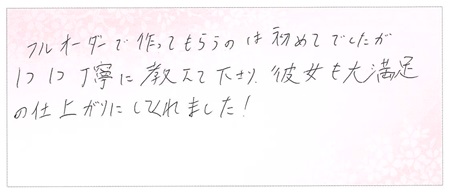 フルオーダーで作ってもらうのは初めてでしたが
1つ1つ丁寧に教えて下さり、彼女も大満足
の仕上がりにしてくれました!